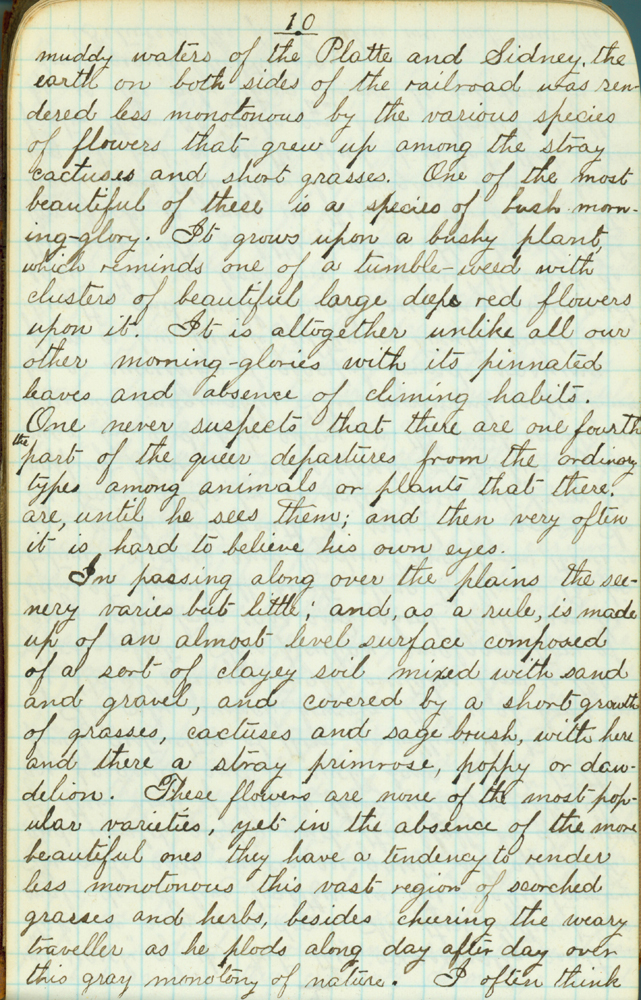 10
muddy waters of the Platte and Sidney, the
earth on both sides of the railroad was ren-
dered less monotonous by the various species
of flowers that grew up among the stray
cactuses and short grasses. One of the most
beautiful of these is a species of bush morn-
ing-glory. It grows upon a bushy plant,
which reminds one of a tumble-weed with
clusters of beautiful large deep red flowers
upon it. It is altogether unlike all our
other morning-glories with its pinnated
leaves and absence of climing habits.
One never suspects that there are one fourth
the
part of the queer departures from the ordinary
types among animals or plants that there
are, until he sees them; and then very often
it is hard to believe his own eyes.
In passing along over the plains the sce-
nery varies but little; and, as a rule, is made
up of an almost level surface composed
of a sort of clayey soil mixed with sand
and gravel, and covered by a short growth
of grasses, cactuses and sage brush, with here
and there a stray primrose, poppy or dan-
delion. These flowers are none of the most pop-
ular varieties, yet in the absence of the more
beautiful ones they have a tendency to render
less monotonous this vast region of scorched
grasses and herbs, besides cheering the weary
traveller as he plods along day after day over
this gray monotony of nature. I often think